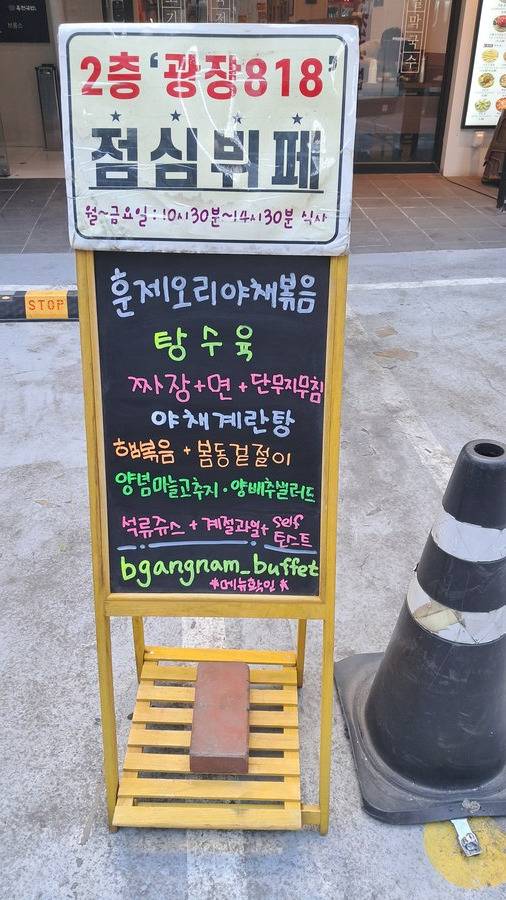 2층 '광장818'
점심뷔페
월~금요일 : 10시30분~14시30분 식사
훈제오리야채볶음
탕수육
짜장+면+단무지무침
야채계란탕
햄볶음+봄동겉절이
양념마늘고추지·양배추샐러드
석류쥬스+계절과일+self
토스트
bgangnam_buffet
*메뉴확인*
STOP
막국수